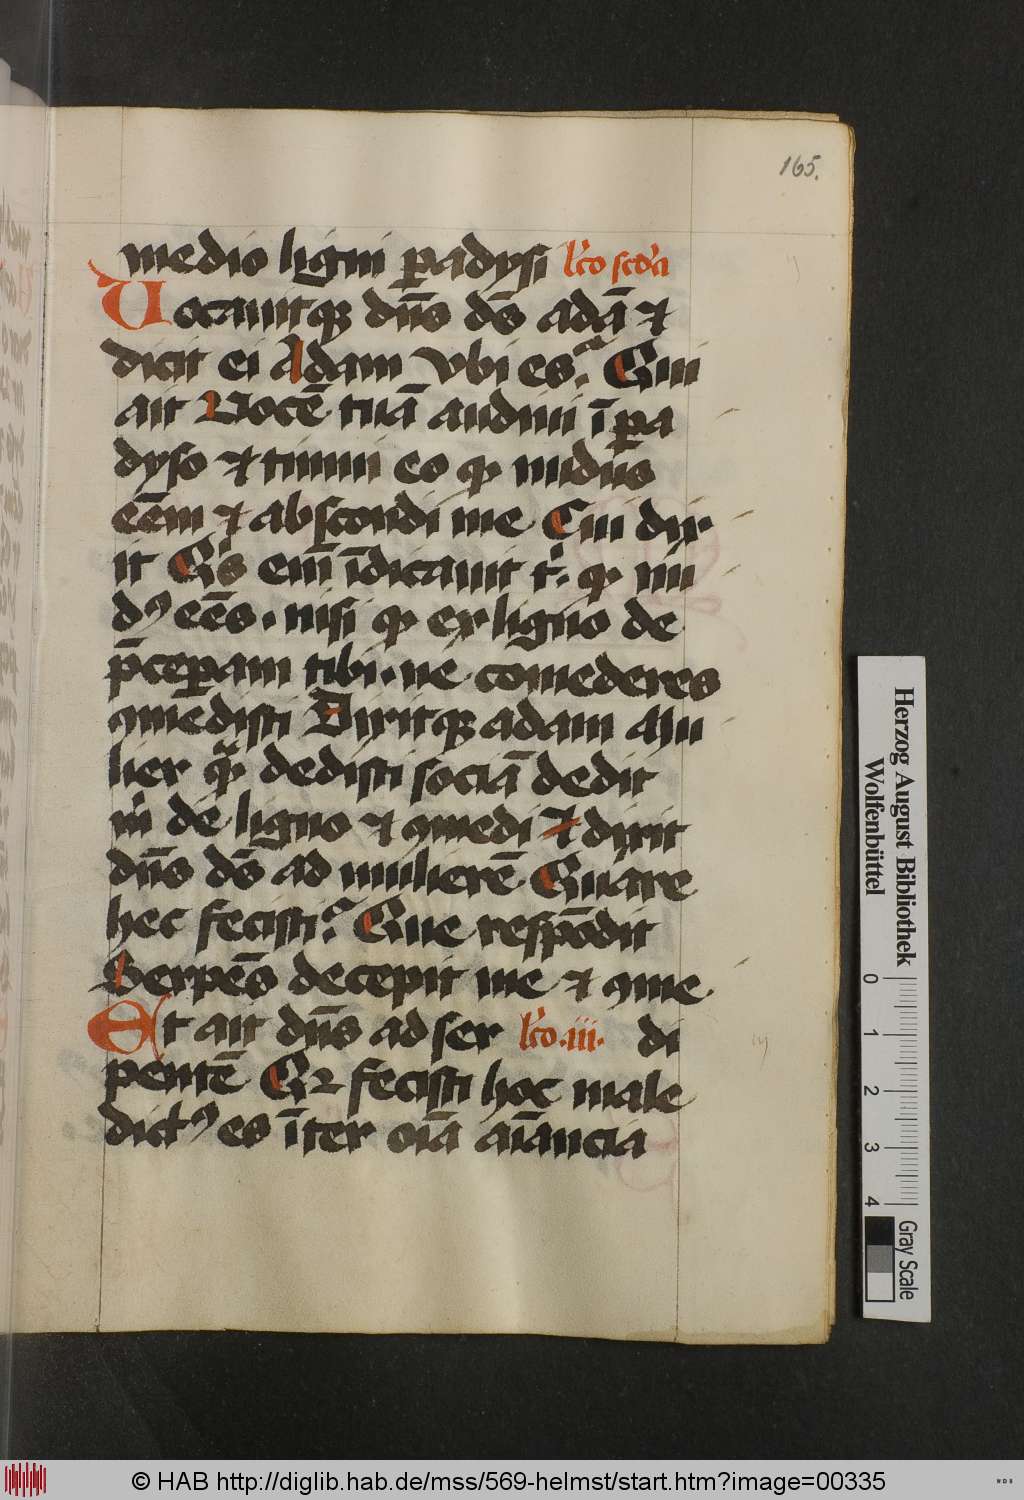 165.
medio ligni p̲adysi lc̄o scd̓a
Vocauitqꝫ dn̄s ds̄ adā ⁊
dicit ei Adam vbi es? Qui
ait Vocē tuā audiui ī p̲a
dyso ⁊ timui eo qꝫ nudus
eēm ⁊ abscondi me Cui dix
it Qͥs em̄ īdicauit tͥ. qꝫ nu
dꝰ eēs. nisi qꝫ ex ligno de
p̄cep̲am tibi. ne comederes
ꝯmedisti Dixitqꝫ adam Mu
lier qᷓ. dedisti sociā dedit
mͥ de ligno ⁊ ꝯmedi ⁊ dixit
dn̄s ds̄ ad mulierē Quare
hec fecisti? Que respōdit
Serpēs decepit me ⁊ ꝯme
Et ait dn̄s ad ser lc̄o .iii. di
pentē Qꝛ fecisti hoc male
dictꝰ es īter oīa aīancia
Herzog August Bibliothek
Wolfenbüttel
0 1 2 3 4
Gray Scale
© HAB http://diglib.hab.de/mss/569-helmst/start.htm?image=00335